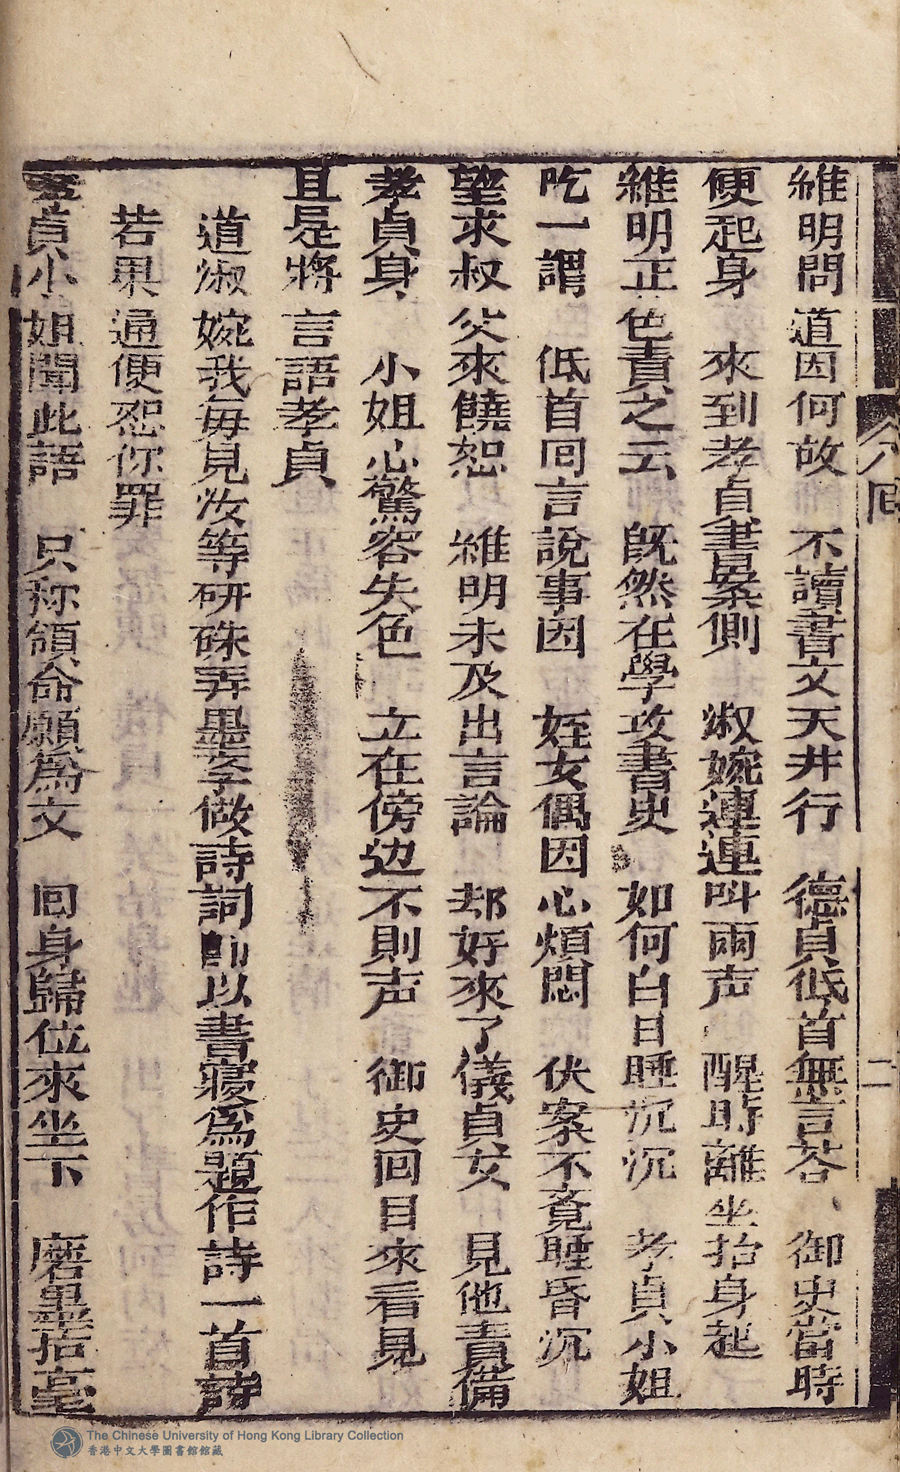 維明問道因何故　不讀書文天井行　德貞低首無言荅　御史當時
便起身　來到孝貞書案側　淑婉連連呌兩声　醒時離坐抬身起
維明正色責之云　既然在學攻書史　如何白日睡沉沉　孝貞小姐
吃一謂　低首囘言說事因　姪女偶因心煩悶　伏案不竟睡昏沉
望求叔父來饒恕　維明未及出言論　却好來了儀貞女　見他責備
孝貞身　小姐心驚容失色　立在傍边不則声　御史回目來看見
且是將言語孝貞
道淑婉我每見汝等研硃弄墨學做詩詞即以書寢爲題作詩一首詩
若果通便恕你罪
貞小姐聞此語　只称領命願爲文　回身歸位來坐下　磨墨拈毫
二
The Chinese University of Hong Kong Library Collection
香港中文大學圖書館館藏